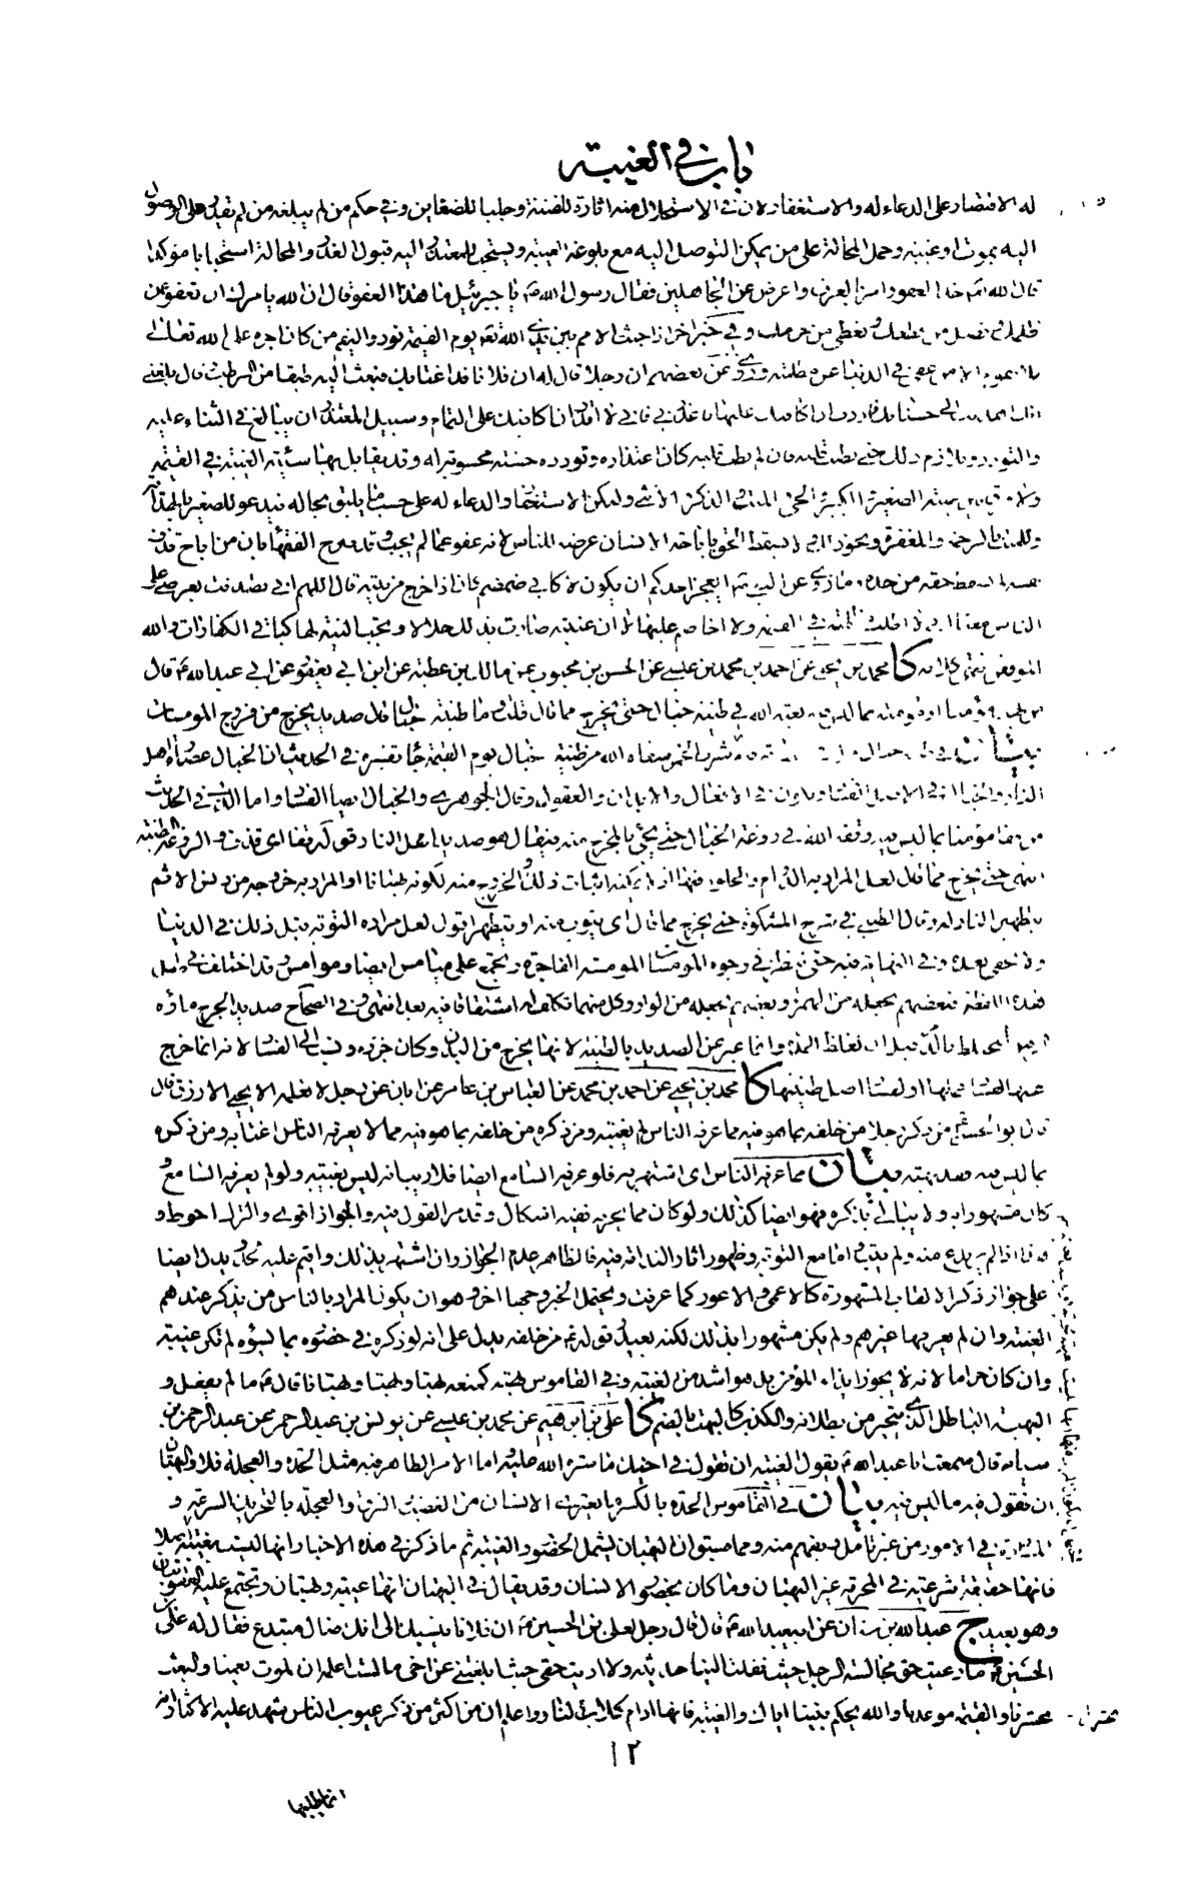 باب في الغيبة
له الاقتصار على الدعاء له والاستغفار لان في الاستحلال منه اثارة للفتنة وجلبا للضغاين وفي حكم من لم يبلغه من لم يقدر على الوصول
اليه بموت او غيبة وحمل المحالة على من يمكن التوصل اليه مع بلوغه الغيبة ويستحب للمعتذر اليه قبول العذر والمحالة استحبابا مؤكدا
قال الله تعالى خذ العفو وامر بالعرف واعرض عن الجاهلين فقال رسول الله ص يا جبرئيل ما هذا العفو قال ان الله يامرك ان تعفو عمن
ظلمك وتصل من قطعك وتعطي من حرمك وفي خبر اخر اذا جثت الامم بين يدي الله تعالى يوم القيمة نودوا ليقم من كان اجره على الله تعالى
فلا يقوم الا من عفى في الدنيا عن مظلمته وروى عن بعضهم ان رجلا قال له ان فلانا قد اغتابك فبعث اليه طبقا من الرطب وقال بلغني
انك اهديت الى حسناتك فاردت ان اكافيك عليها فاعذرني فاني لا اقدر ان اكافيك على التمام وسبيل المعتذر ان يبالغ في الثناء عليه
والتودد ويلازم ذلك حتى يطيب قلبه فان لم يطب قلبه كان اعتذاره وتودده حسنة محسوبة له وقد يقابل بها سيئة الغيبة في القيمة
ولا فرق بين غيبة الصغير والكبير والحي والميت والذكر والانثى وليكن الاستغفار والدعاء له على حسب ما يليق بحاله فيدعو للصغير بالهداية
وللميت بالرحمة والمغفرة ونحو ذلك ولا يسقط الحق باباحة الانسان عرضه للناس لانه عفو عما لم يجب وقد صرح الفقهاء بان من اباح قذف
نفسه لم يسقط حقه من حده وما روى عن النبي ص ايعجز احدكم ان يكون كابي ضمضم كان اذا خرج من بيته قال اللهم اني تصدقت بعرضي على
الناس معناه اني لا اطلب مظلمته في القيمة ولا اخاصم عليها لا ان غيبته صارت بذلك حلالا ويجب النية لها كباقي الكفارات والله
الموفق انتهى كلامه كا محمد بن يحيى عن احمد بن محمد بن عيسى عن الحسن بن محبوب عن مالك بن عطية عن ابن ابي يعفور عن ابي عبد الله ع قال
من بهت مؤمنا او مؤمنة بما ليس فيه بعثه الله في طينة خبال حتى يخرج مما قال قلت وما طينة خبال قال صديد يخرج من فروج المومسات
بيان في شرب الخمر سقاه الله من طينة خبال يوم القيمة جاء تفسيره في الحديث ان الخبال عصارة اهل
النار والخبال في الاصل الفساد ويكون في الافعال والابدان والعقول وقال الجوهري والخبال ايضا الفساد واما الذي في الحديث
من قفا مؤمنا بما ليس فيه وقفه الله في ردغة الخبال حتى يجئ بالمخرج منه فيقال هو صديد اهل النار قوله قفا اى قذف والردغة الطينة
انتهى حتى يخرج مما قال لعل المراد به الدوام والخلود فيها اذ لا يمكنه اثبات ذلك والخروج منه لكونه بهتانا او المراد به خروجه من دنس الاثم
بتطهير النار له وقال الطيبي في شرح المشكوة حتى يخرج مما قال اى يتوب منه او يتطهر اقول لعل مراده التوبة قبل ذلك في الدنيا
ولا يخفى بعده وفي النهاية فيه حتى تنظر في وجوه المومسات المومسة الفاجرة وتجمع على ميامس ايضا ومواميس وقد اختلف في اصل
هذه اللفظة فبعضهم يجعله من الهمزة وبعضهم يجعله من الواو وكل منهما تكلف له اشتقاقا فيه بعد انتهى وفي الصحاح صديد الجرح ماؤه
الرقيق المختلط بالدم قبل ان تغلظ المدة وانما عبر عن الصديد بالطينة لانها يخرج من البدن وكان جزءه ونسب الى الفساد لانه انما خرج
عنها لفسادها او لفساد اصل طينتها كا محمد بن يحيى عن احمد بن محمد عن العباس بن عامر عن ابان عن رجل لا نعلمه الا يحيى الازرق قال
قال ابو الحسن ع من ذكر رجلا من خلفه بما هو فيه مما عرفه الناس لم يغتبه ومن ذكره من خلفه بما هو فيه مما لا يعرفه الناس اغتابه ومن ذكره
بما ليس فيه فقد بهته بيان مما عرفه الناس اى اشتهر به فلو عرفه السامع ايضا فلا ريب انه ليس بغيبة ولو لم يعرفه السامع و
كان مشهورا به ولا يبالي بذكره فهو ايضا كذلك ولو كان مما يحزنه ففيه اشكال وقد مر القول فيه والجواز اقوى والترك احوط و
هذا اذا لم يرتدع منه ولم يتب واما مع التوبة وظهور اثار الندامة فيه فالظاهر عدم الجواز وان اشتهر بذلك واقيم عليه الحد ويدل ايضا
على جواز ذكر الالقاب المشهورة كالاعمى والاعور كما عرفت ويحتمل الخبر وجها اخر وهو ان يكون المراد بالناس من يذكر عندهم
الغيبة وان لم يعرفها غيرهم ولم يكن مشهورا بذلك لكنه بعيد قوله ع من خلفه يدل على انه لو ذكره في حضوره بما يسؤه لم تكن غيبة
وان كان حراما لانه لا يجوز ايذاء المؤمن بل هو اشد من الغيبة وفي القاموس بهته كمنعه بهتا وبهتا وبهتانا قال ع ما لم يفعل و
البهيتة الباطل الذي يتحير من بطلانه والكذب كالبهت بالضم كا علي بن ابراهيم عن محمد بن عيسى عن يونس بن عبد الرحمن عن عبد الرحمن بن
سيابة قال سمعت ابا عبد الله ع يقول الغيبة ان تقول في اخيك ما ستره الله عليه واما الامر الظاهر فيه مثل الحدة والعجلة فلا والبهتان
ان تقول فيه ما ليس فيه بيان في القاموس الحدة بالكسر ما يعتري الانسان من الغضب والنزق والعجلة بالتحريك السرعة و
المبادرة في الامور من غير تامل ويفهم منه ومما سبق ان البهتان يشمل الحضور والغيبة ثم ما ذكر في هذه الاخبار انها ليست بغيبة
فانها حقيقة شرعية في المحرمة غير البهتان وما كان بحضور الانسان وقد يقال في البهتان انها غيبة وبهتان وتجتمع عليه العقوبتان
وهو بعيد ج عبد الله بن سنان عن ابي عبد الله ع قال قال رجل لعلي بن الحسين ع ان فلانا ينسبك الى انك ضال مبتدع فقال له علي بن
الحسين ع ما رعيت حق مجالسة الرجل حيث نقلت الينا حديثه ولا اديت حقي حيث ابلغتني عن اخي ما لست اعلمه ان الموت يعمنا والبعث
محشرنا والقيمة موعدنا والله يحكم بيننا اياك والغيبة فانها ادام كلاب النار واعلم ان من اكثر من ذكر عيوب الناس شهد عليه الاكثار انه
١٢
انما يطلبها